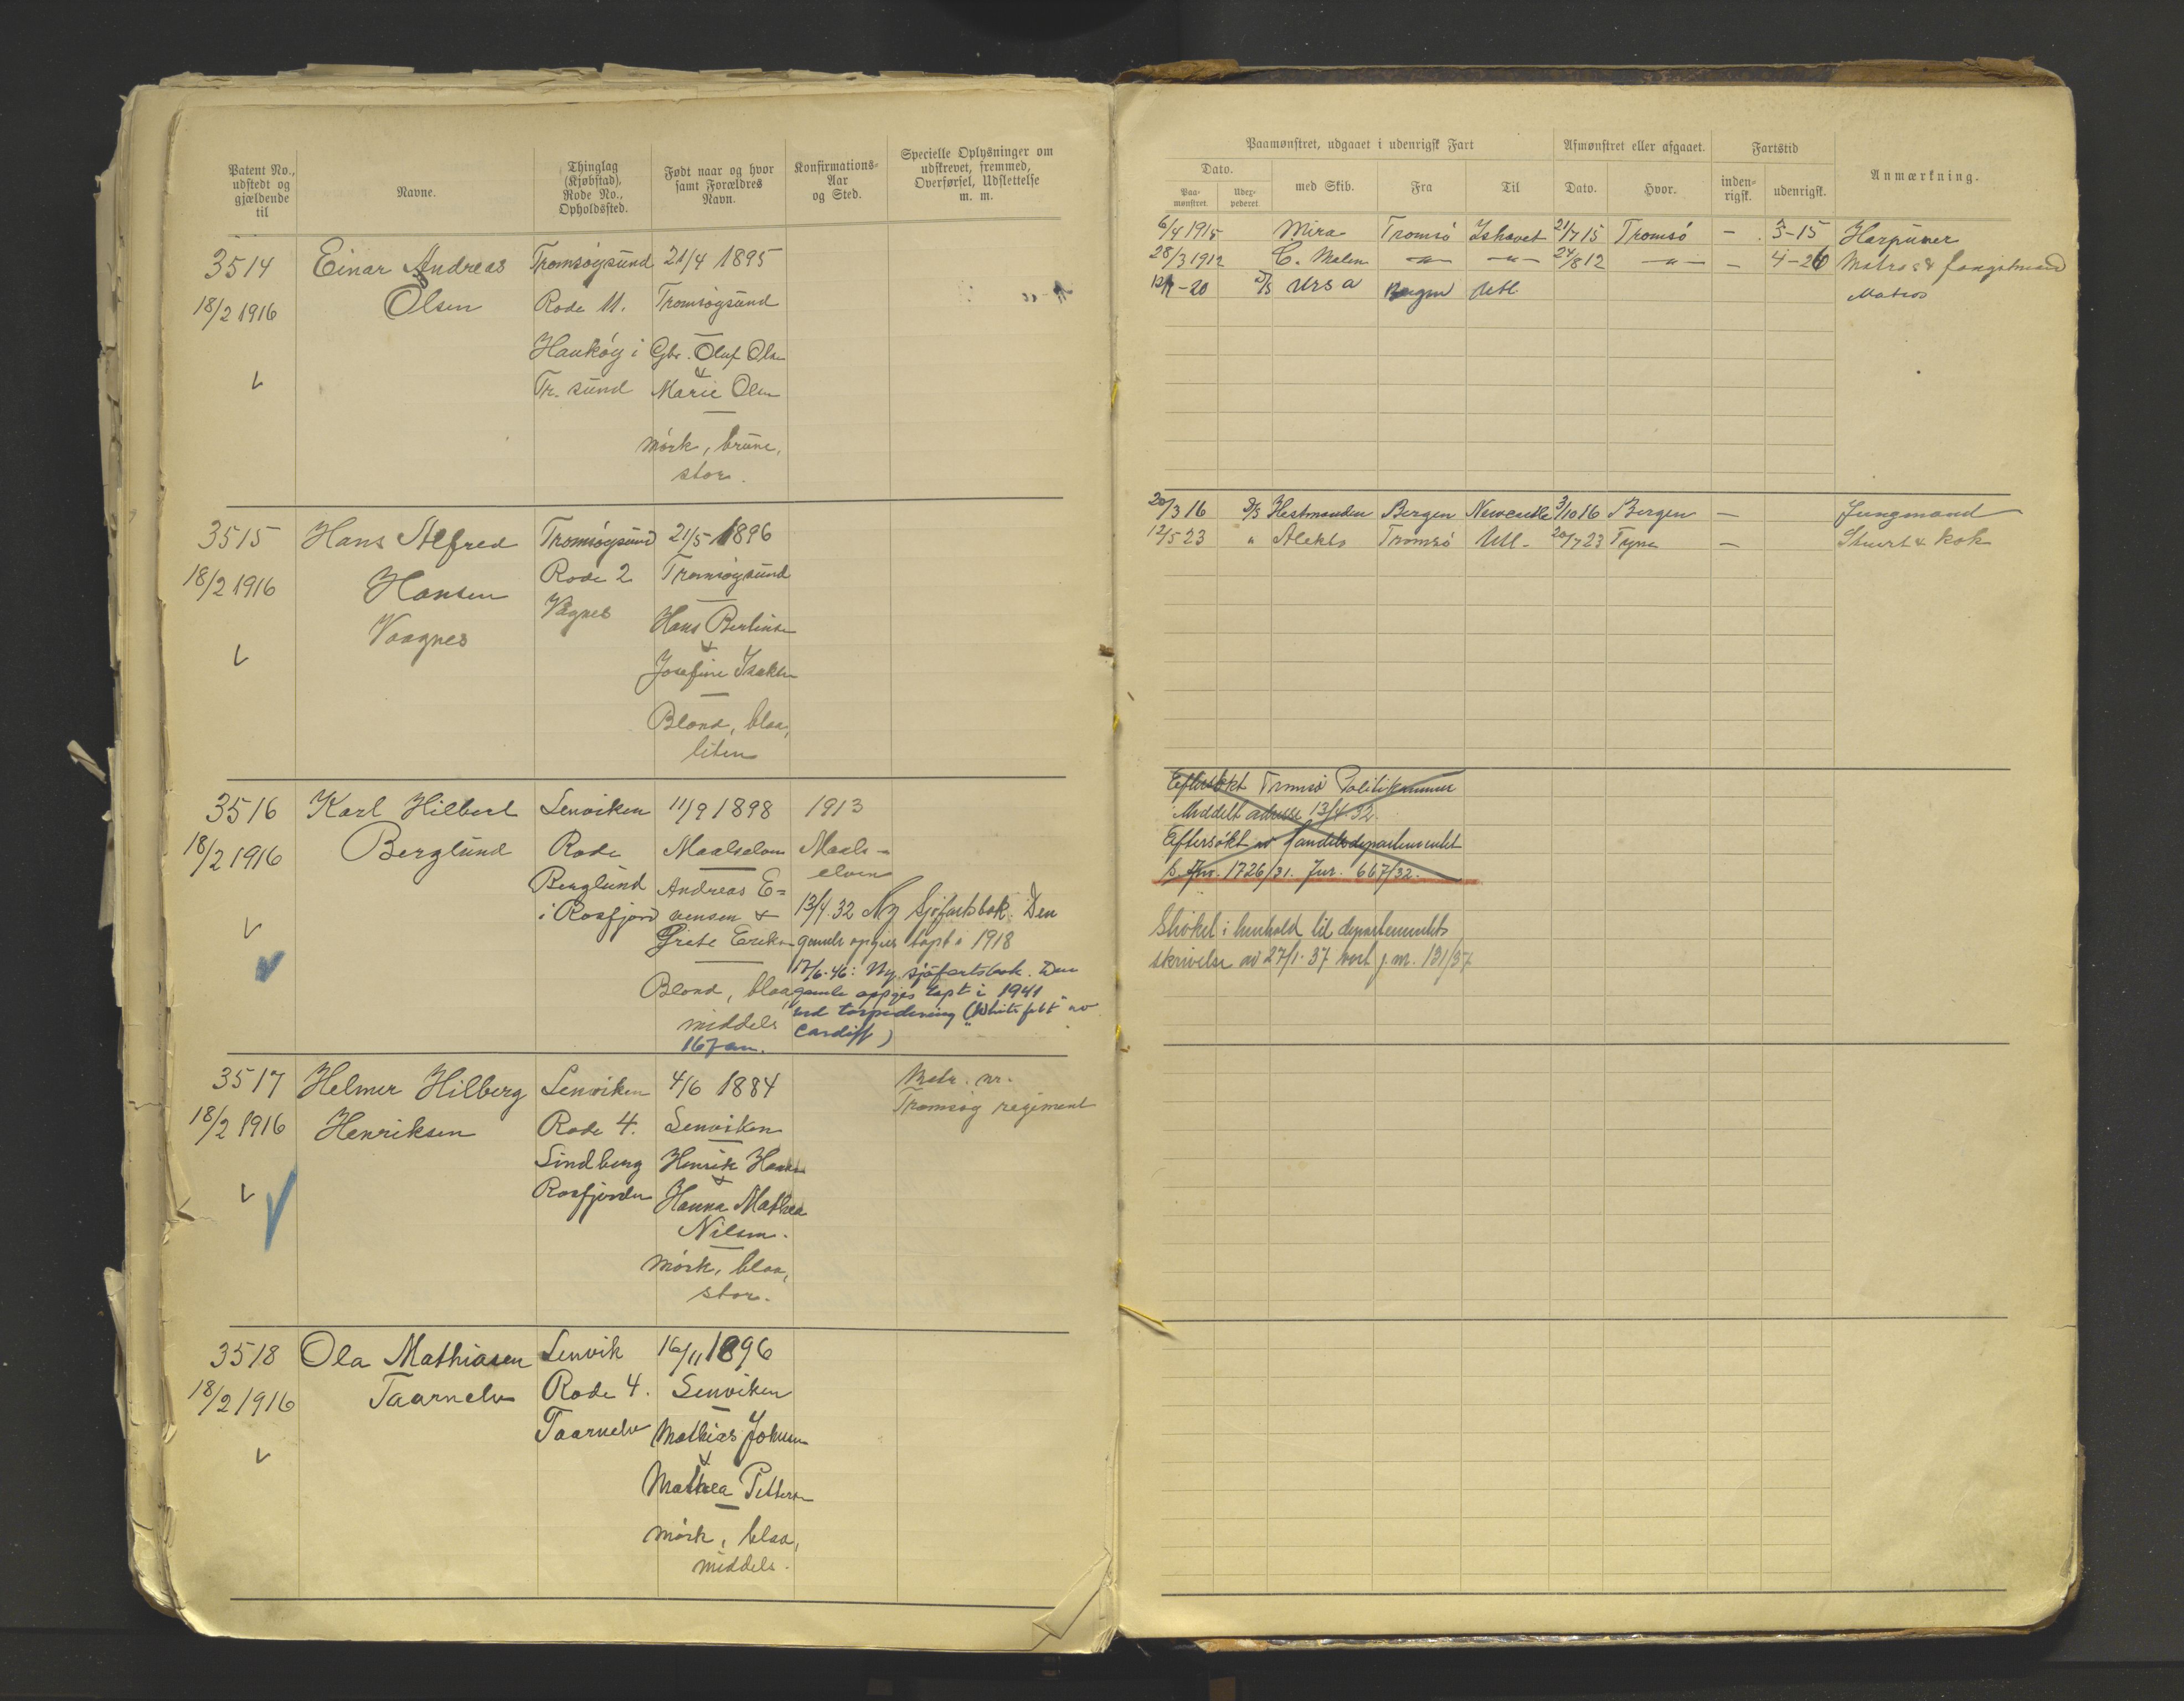 Patent No., udstedt og gjældende til
Navne.
Thinglag (Kjøbstad), Rode No., Opholdssted.
Født naar og hvor samt Forældres Navn.
Konfirmations-Aar og Sted.
Specielle Oplysninger om udskrevet, fremmed, Overførsel, Udslettelse m. m.
3514
18/2 1916
Einar Andreas
Olsen
Tromsøysund
Rode 11.
Haukøy i
Tr. sund
21/4 1895
Tromsøysund
Gbr. Oluf Olsen
&
Marie Olsen
mørk, brune,
stor.
3515
18/2 1916
Hans Alfred
Hansen
Vaagnes
Tromsøysund
Rode 2
Vågnes
21/5 1896
Tromsøysund
Hans Berlinsen
&
Josefine Isaksen
Blond, blaa,
liten
3516
18/2 1916
Karl Hilbert
Berglund
Lenviken
Rode
Berglund
i Rosfjord
11/9 1898
Maalselven
Andreas E=
vensen &
Grete Eriksen
Blond, blaa,
middels
167 cm.
1913
Maals-
elven
13/4.32 Ny Sjøfartsbok. Den
gamle opgies tapt i 1918
17/6-46: Ny sjøfartsbok. Den
gamle oppgis tapt i 1941
ved torpedering ( av
Cardiff)
3517
18/2 1916
Helmer Hilberg
Henriksen
Lenviken
Rode 4.
Lindberg
Rosfjorden
4/6 1884
Lenviken
Henrik Hansen
&
Hanna Mathea
Nilsen.
mørk, blaa,
stor.
Matr. nr.
Tromsøy regiment
3518
18/2 1916
Ola Mathiasen
Taarnelv
Lenvik
Rode 4.
Taarnelv
16/11 1896
Lenviken
Mathias Johnsen
&
Mathea Pettersen
mørk, blaa,
middels.
Paamønstret, udgaaet i udenrigsk Fart
Afmønstret eller afgaaet.
Fartstid
Anmærkning.
Dato.
Paa-mønstret.
Udex-pederet
med Skib.
Fra
Til
Dato.
Hvor.
inden-rigsk.
udenrigsk.
6/4 1915 Mira Tromsø Ishavet 21/7 15 Tromsø - 3-15 Harpuner
28/3 1912 C. Malm -"- -"- 24/8 12 -"- - 4-26 Matros & fangstmand
-20 D/S Ursa Bergen Utl. Matros
20/3 16 D/S Hestmanden Bergen Newcastle 3/10 16 Bergen - Jungmand
12/5 23 " Alekto Tromsø Utl. 20/7 23 Tyne - Stuert & kok
Eftersøkt Tromsø Politikammer
Meddelt adresse 13/4.32.
Eftersøkt av Handelsdepartementet
1726/31. Jnr. 667/32.
Strøket i henhold til departementets
skrivelse av 27/1-37 vort j.nr. 131/37